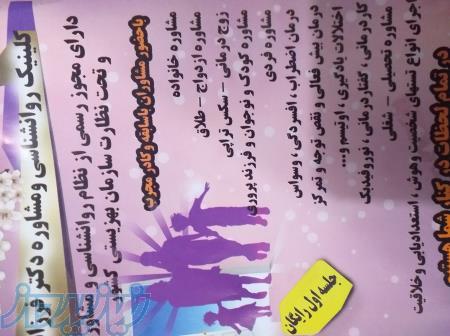 کلینیک روانشناسی ومشاوره دکتر
دارای مجوز رسمی از نظام روانشناسی و مشاوره
و تحت نظارت سازمان بهزیستی کشور
باحضور مشاوران باسابقه و کادر مجرب
مشاوره خانواده
مشاوره ازدواج - طلاق
زوج درمانی - سکس تراپی
مشاوره کودک و نوجوان و فرزند پروری
مشاوره فردی
درمان اضطراب ، افسردگی ، وسواس
درمان بیش فعالی و نقص توجه و تمرکز
اختلالات یادگیری ، اوتیسم و...
کاردرمانی ، گفتاردرمانی ، نوروفیدبک
مشاوره تحصیلی - شغلی
اجرای انواع تستهای شخصیت وهوش ، استعدادیابی و خلاقیت
در تمام لحظات در کنار شما هستیم
جلسه اول رایگان